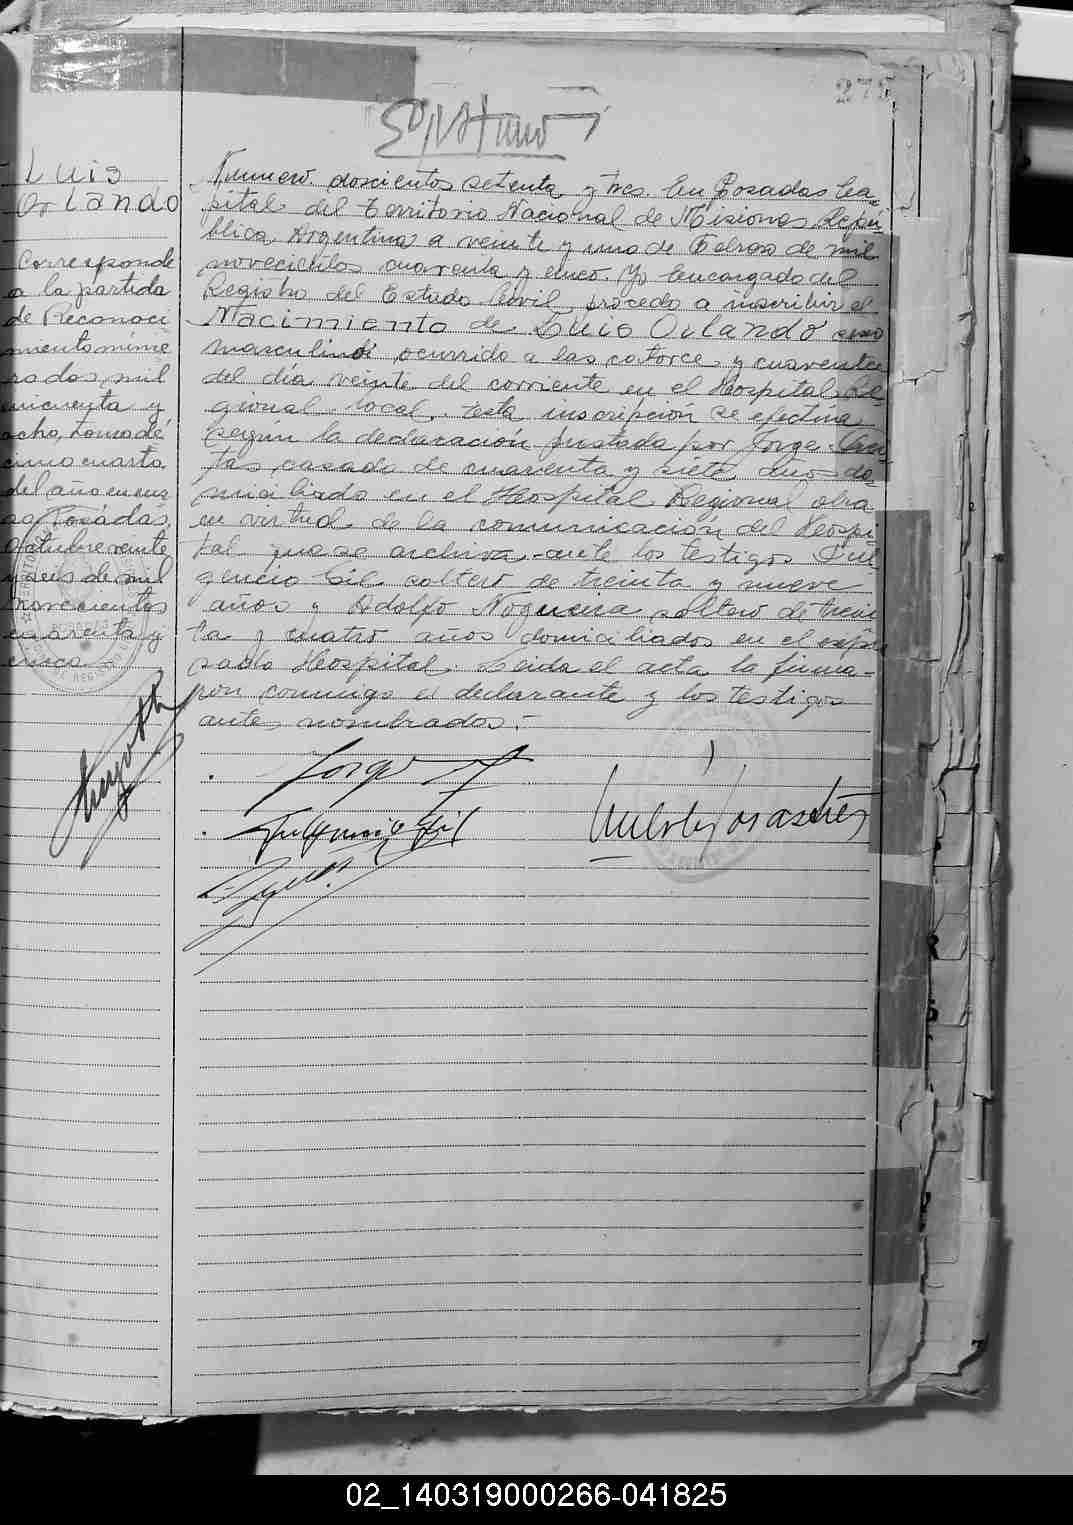 275
Luis
Orlando
Corresponde
a la partida
de Reconoci
miento núme
rados mil
cincuenta y
ocho, tomo dé
cimo cuarto
del año en cur
so Posadas,
octubre veinte
y seis de mil
novecientos
cuarenta y
cinco
Número doscientos setenta y tres. En Posadas Ca-
pital del Territorio Nacional de Misiones, Repú-
blica Argentina a veinte y uno de Febrero de mil
novecientos cuarenta y cinco. Yo Encargado del
Registro del Estado Civil, procedo a inscribir el
Nacimiento de Luis Orlando sexo
masculino ocurrido a las catorce y cuarenta
del día veinte del corriente en el Hospital Re-
gional local. Esta inscripcion se efectúa
según la declaración prestada por Jorge
casado de cuarenta y siete años do-
miciliado en el Hospital Regional obra
en virtud de la comunicación del Hospi-
tal que se archiva ante los testigos Ful
gencio Gil soltero de treinta y nueve
años y Adolfo Nogueira soltero de trein
ta y cuatro años domiciliados en el expre
sado Hospital. Leida el acta la firma-
ron conmigo el declarante y los testigos
antes nombrados.-
Jorge
Fulgencio Gil
02_140319000266-041825